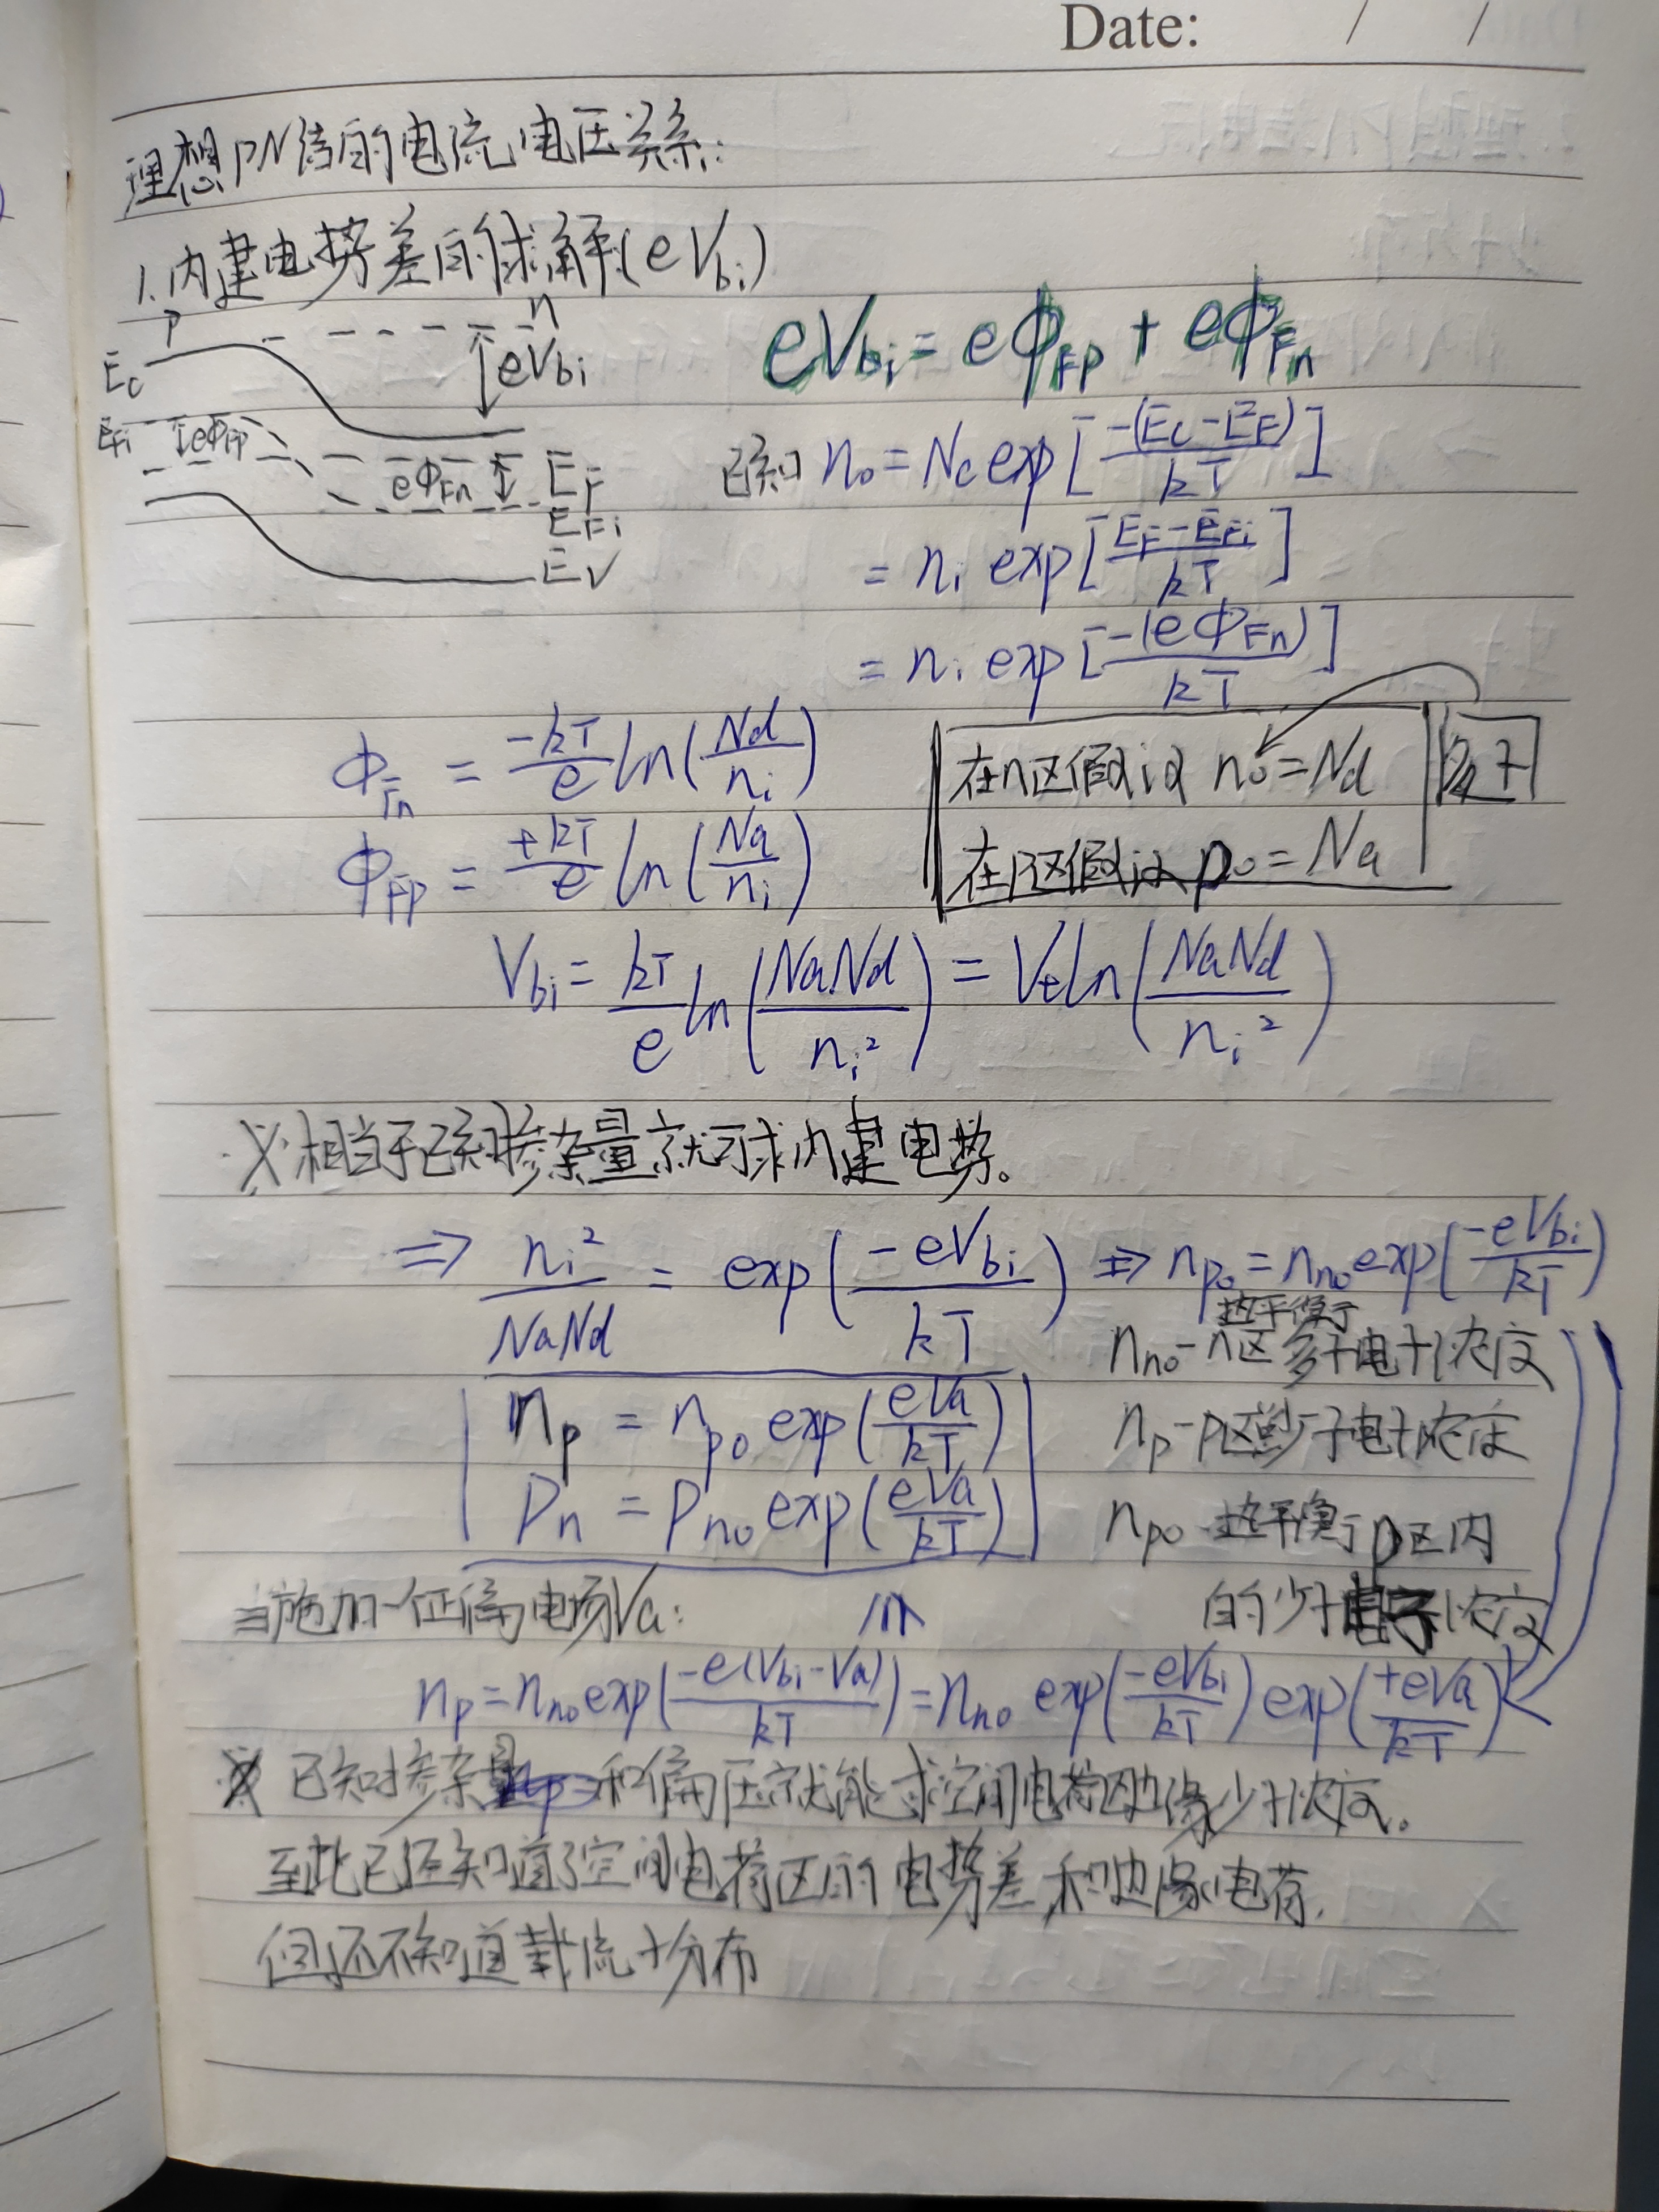 Date: / /
理想PN结的电流电压关系:
1.内建电势差的求解(eVbi)
P n
Ec eVbi
eVbi = eϕFp + eϕFn
EFi eϕFp
eϕFn EF
EFi
EV
已知 n₀ = Nc exp[-(Ec-EF)/kT]
= ni exp[EF-EFi/kT]
= ni exp[-(eϕFn)/kT]
ϕFn = -kT/e ln(Nd/ni)
ϕFp = +kT/e ln(Na/ni)
在n区假设 n₀=Nd 多子
在p区假设 p₀=Na
Vbi = kT/e ln(NaNd/ni²) = Vt ln(NaNd/ni²)
※相当于已知掺杂量就可求内建电势。
⇒ ni²/NaNd = exp(-eVbi/kT) ⇒ np₀ = nn₀ exp(-eVbi/kT)
热平衡于
nn₀-n区多子电子浓度
np = np₀ exp(eVa/kT)
np-p区少子电子浓度
Pn = Pn₀ exp(eVa/kT)
np₀-热平衡于p区内
的少子电子浓度
当施加一正偏电场Va:
np = nn₀ exp(-e(Vbi-Va)/kT) = nn₀ exp(-eVbi/kT) exp(+eVa/kT)
※ 已知掺杂量和偏压就能求空间电荷区边缘少子浓度。
至此已经知道了空间电荷区的电势差和边缘电荷,
但还不知道载流子分布